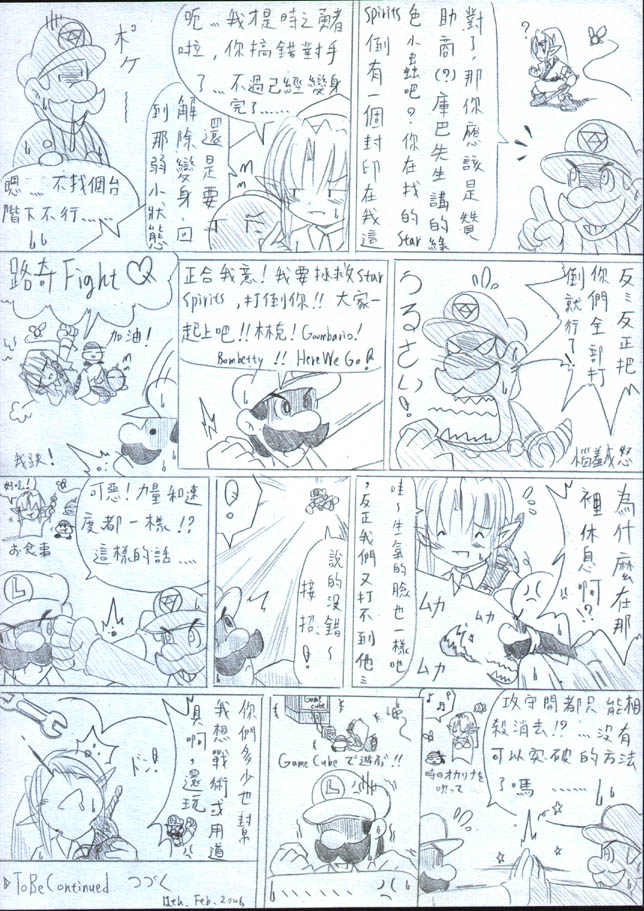 對了，那你應該是贊
助商(?)庫巴先生講的綠
色小蟲吧？你在找的Star
Spirits倒有一個封印在我這
?
呃……我才是時之勇者
啦，你搞錯對手
了…不過已經變身
完了……
還是要
解除變身，回
到那弱小狀態
ポケー
嗯……不找個台
階下不行……
反正反正把
你們全部打
倒就行了！
うるさい！
惱羞成怒
正合我意！我要拯救Star
Spirits，打倒你!! 大家一
起上吧!!林克！Goombario！
Bombetty!! Here We Go!
路奇Fight
加油！
我誒！
為什麼在那
裡休息啊!?
ムカ
ムカ
ムカ
哇～生氣的臉也一樣吧
，反正我們又打不到他
說的沒錯～
接招！
可惡！力量和速
度都一樣!?
這樣的話……
好吃！
お食事
L
攻守間都只能相
殺消去!?…沒有
可以突破的方法
了嗎……
時のオカリナを
吹って
Game
Cube
Game Cubeで遊ぶ!!
L
你們多少也幫
我想戰術或用道
具啊，還玩
ドン！
▷ToBeContinued つづく
11th. Feb. 2006